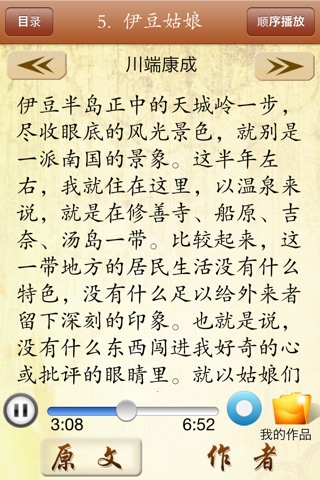 目录
5. 伊豆姑娘
顺序播放
川端康成
伊豆半岛正中的天城岭一步，
尽收眼底的风光景色，就别是
一派南国的景象。这半年左
右，我就住在这里，以温泉来
说，就是在修善寺、船原、吉
奈、汤岛一带。比较起来，这
一带地方的居民生活没有什么
特色，没有什么足以给外来者
留下深刻的印象。也就是说，
没有什么东西闯进我好奇的心
或批评的眼睛里。就以姑娘们
3:08
6:52
我的作品
原文
作者